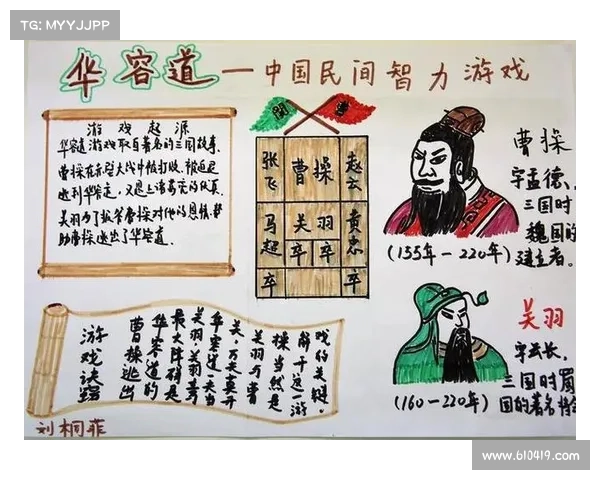 TG: MYYJJPP
华容道—中国民间智力游戏
游戏起源
华容道游戏取自著名的三国故事.
曹操在赤壁大战中被打败,被迫退
逃到华容道,又遇上诸葛亮的伏兵,
关羽为了报答曹操对他的恩情,帮
助曹操逃出了华容道.
關
曹
张飞
曹操
赵云
马超
关羽
黄忠
卒
卒
卒
卒
曹操
字孟德,
三国时
魏国的
建立者.
(155年—220年)
游戏诀窍
曹操逃出
华容道的
最大障碍是
关羽,关羽
华容道,一夫当
关,万夫莫开
关羽与曹
操当然是
解开这一游
戏的关键.
关羽
字云长,
三国时蜀
国的著名将
(160—220年)
刘桐菲
www.610419.com